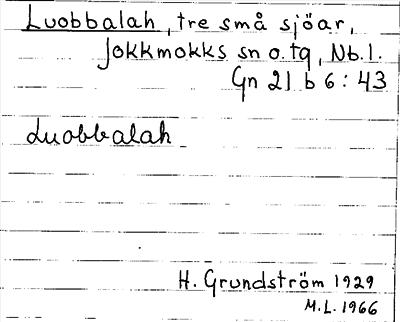 Luobbalah, tre små sjöar,
Jokkmokks sn o. tg, Nb. l.
Gn 21 b 6 : 43
Luobbalah
H. Grundström 1929
M.L. 1966